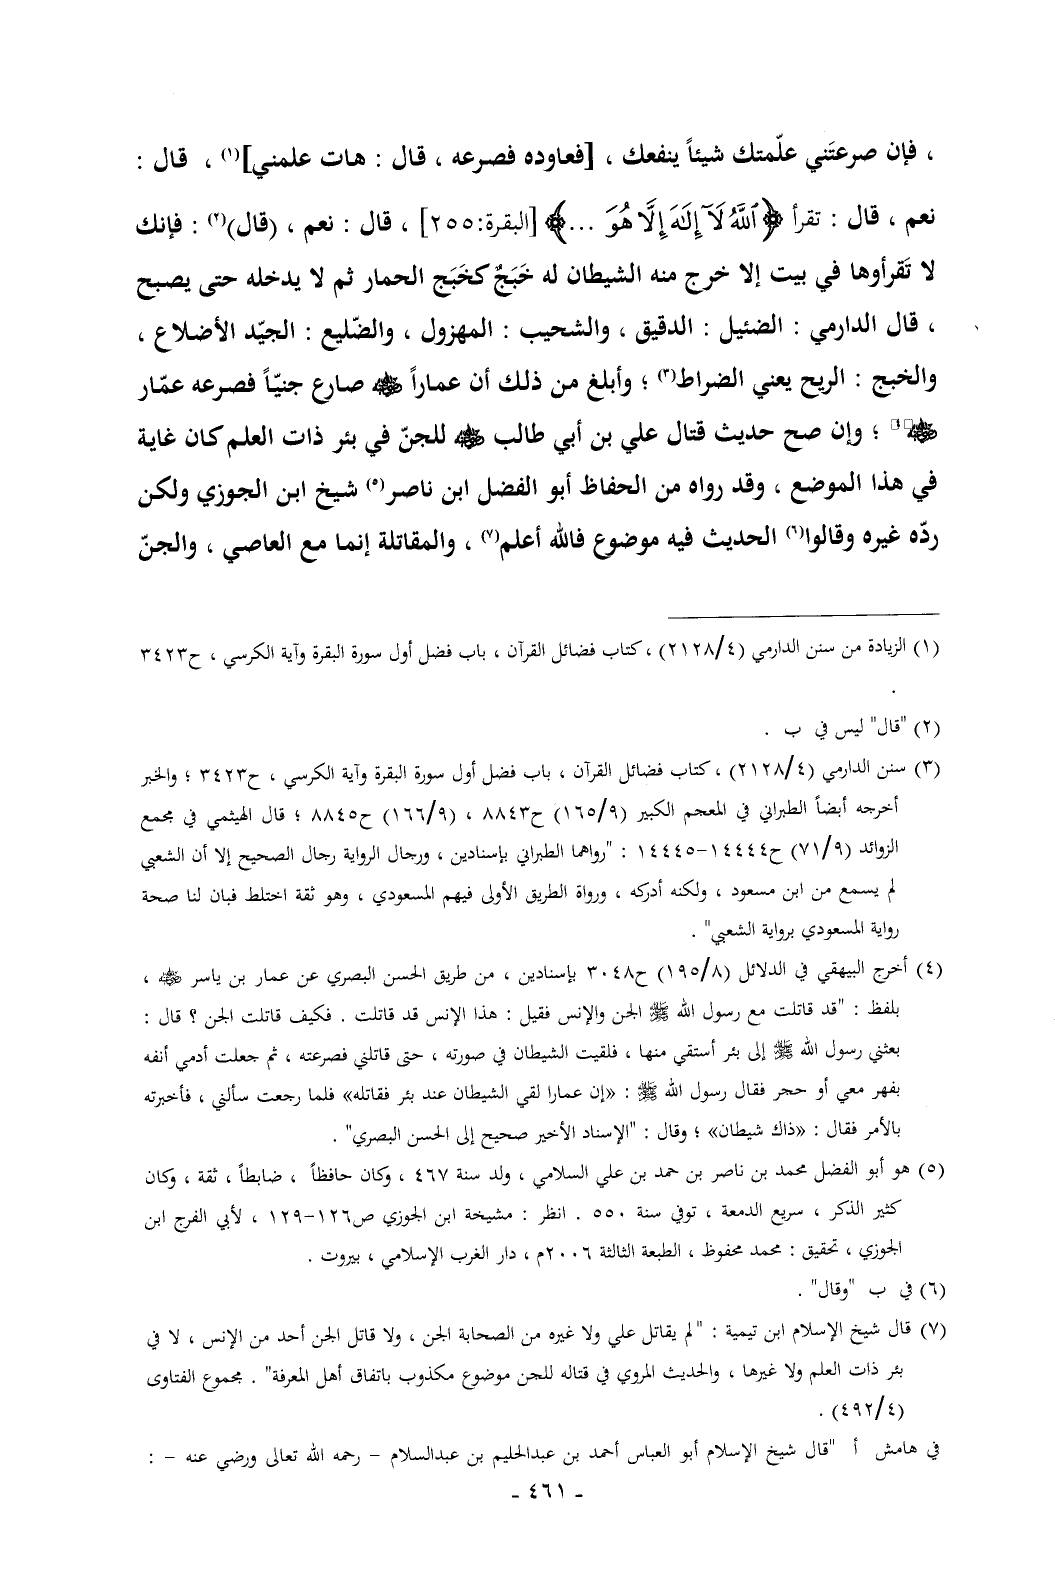 ، فإن صرعتَني علّمتك شيئاً ينفعك ، [فعاوده فصرعه ، قال : هات علمني](١) ، قال :
نعم ، قال : تقرأ ﴿ٱللَّهُ لَآ إِلَٰهَ إِلَّا هُوَ ...﴾ [البقرة:٢٥٥] ، قال : نعم ، (قال)(٢) : فإنك
لا تَقرأوها في بيت إلا خرج منه الشيطان له خَبَجٌ كخَبَج الحمار ثم لا يدخله حتى يصبح
، قال الدارمي : الضئيل : الدقيق ، والشحيب : المهزول ، والضّليع : الجيّد الأضلاع ،
والخبج : الريح يعني الضراط(٣) ؛ وأبلغ من ذلك أن عماراً ﷺ صارع جنيّاً فصرعه عمّار
(٤) ؛ وإن صح حديث قتال علي بن أبي طالب للجنّ في بئر ذات العلم كان غاية
في هذا الموضع ، وقد رواه من الحفاظ أبو الفضل ابن ناصر(٥) شيخ ابن الجوزي ولكن
ردّه غيره وقالوا(٦) الحديث فيه موضوع فالله أعلم(٧) ، والمقاتلة إنما مع العاصي ، والجنّ
(١) الزيادة من سنن الدارمي (٢١٢٨/٤) ، كتاب فضائل القرآن ، باب فضل أول سورة البقرة وآية الكرسي ، ح٣٤٢٣
.
(٢) "قال" ليس في ب .
(٣) سنن الدارمي (٢١٢٨/٤) ، كتاب فضائل القرآن ، باب فضل أول سورة البقرة وآية الكرسي ، ح٣٤٢٣ ؛ والخبر
أخرجه أيضاً الطبراني في المعجم الكبير (١٦٥/٩) ح٨٨٤٣ ، (١٦٦/٩) ح٨٨٤٥ ؛ قال الهيثمي في مجمع
الزوائد (٧١/٩) ح١٤٤٤٤-١٤٤٤٥ : "رواهما الطبراني بإسنادين ، ورجال الرواية رجال الصحيح إلا أن الشعبي
لم يسمع من ابن مسعود ، ولكنه أدركه ، ورواة الطريق الأولى فيهم المسعودي ، وهو ثقة اختلط فبان لنا صحة
رواية المسعودي برواية الشعبي" .
(٤) أخرج البيهقي في الدلائل (١٩٥/٨) ح٣٠٤٨ بإسنادين ، من طريق الحسن البصري عن عمار بن ياسر ،
بلفظ : "قد قاتلت مع رسول الله ﷺ الجن والإنس فقيل : هذا الإنس قد قاتلت . فكيف قاتلت الجن ؟ قال :
بعثني رسول الله ﷺ إلى بئر أستقي منها ، فلقيت الشيطان في صورته ، حتى قاتلني فصرعته ، ثم جعلت أدمي أنفه
بفهر معي أو حجر فقال رسول الله ﷺ : «إن عمارا لقي الشيطان عند بئر فقاتله» فلما رجعت سألني ، فأخبرته
بالأمر فقال : «ذاك شيطان» ؛ وقال : "الإسناد الأخير صحيح إلى الحسن البصري" .
(٥) هو أبو الفضل محمد بن ناصر بن حمد بن علي السلامي ، ولد سنة ٤٦٧ ، وكان حافظاً ، ضابطاً ، ثقة ، وكان
كثير الذكر ، سريع الدمعة ، توفي سنة ٥٥٠ . انظر : مشيخة ابن الجوزي ص١٢٦-١٢٩ ، لأبي الفرج ابن
الجوزي ، تحقيق : محمد محفوظ ، الطبعة الثالثة ٢٠٠٦م ، دار الغرب الإسلامي ، بيروت .
(٦) في ب "وقال" .
(٧) قال شيخ الإسلام ابن تيمية : "لم يقاتل علي ولا غيره من الصحابة الجن ، ولا قاتل الجن أحد من الإنس ، لا في
بئر ذات العلم ولا غيرها ، والحديث المروي في قتاله للجن موضوع مكذوب باتفاق أهل المعرفة" . مجموع الفتاوى
(٤٩٢/٤) .
في هامش أ "قال شيخ الإسلام أبو العباس أحمد بن عبدالحليم بن عبدالسلام – رحمه الله تعالى ورضي عنه – :
- ٤٦١ -